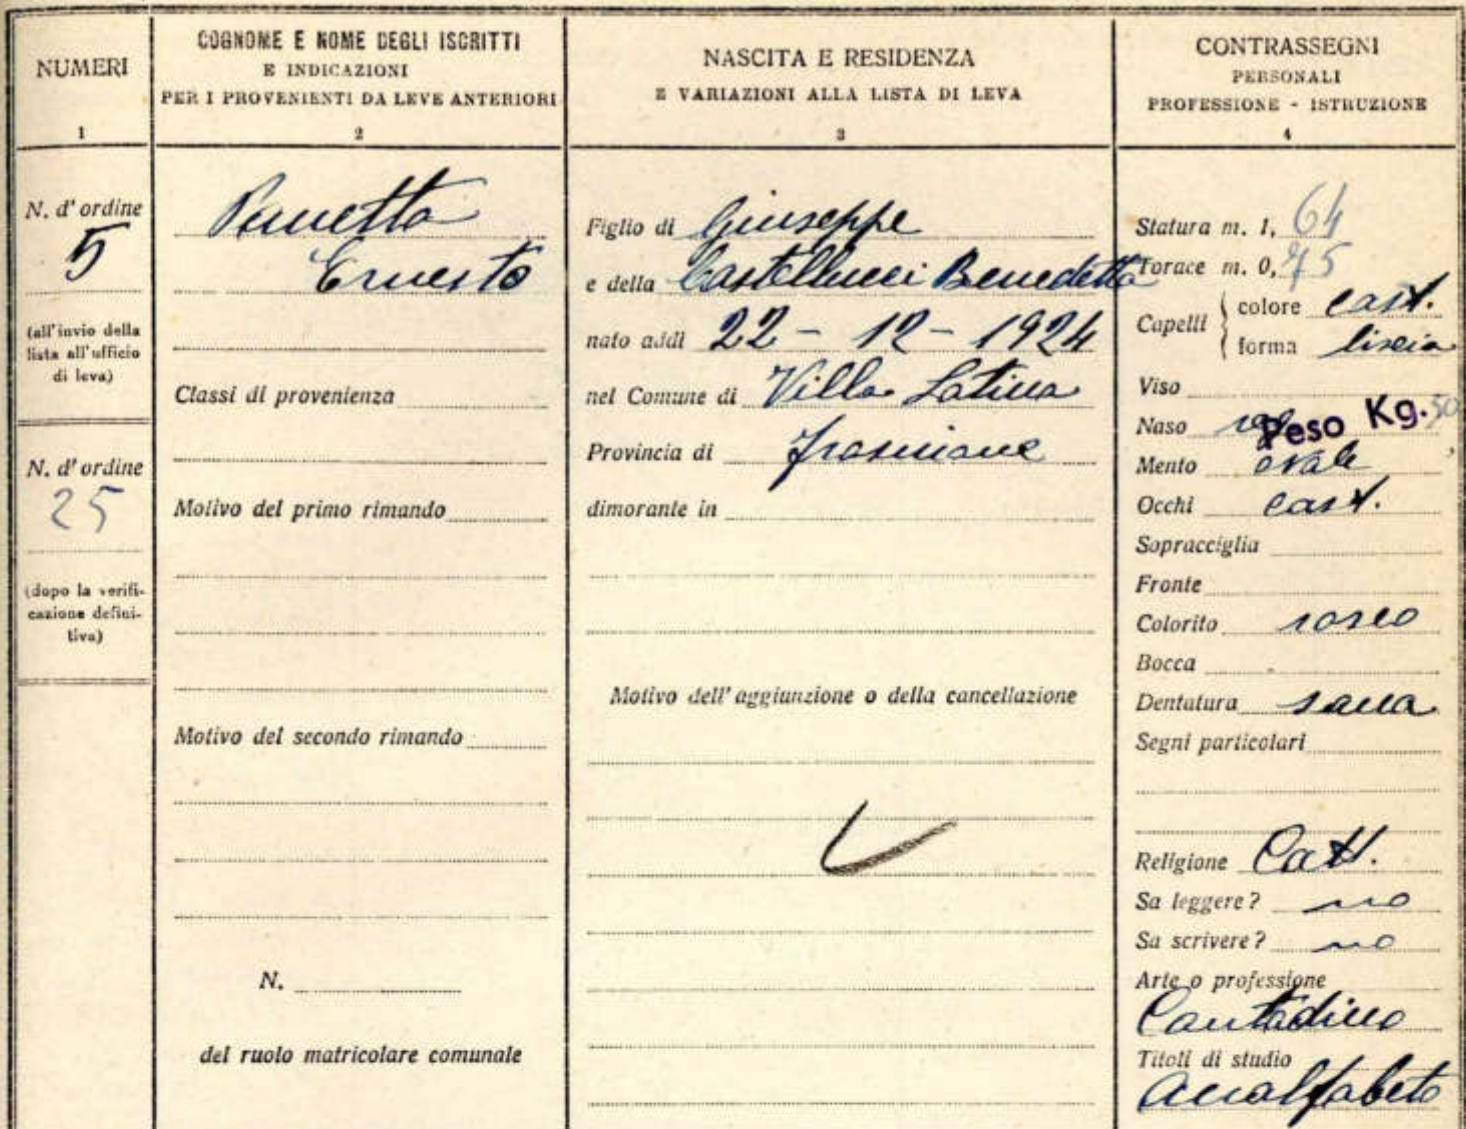 NUMERI
1
N. d'ordine
5
(all'invio della
lista all'ufficio
di leva)
N. d'ordine
25
(dopo la verifi-
cazione defini-
tiva)
COGNOME E NOME DEGLI ISCRITTI
E INDICAZIONI
PER I PROVENIENTI DA LEVE ANTERIORI
2
Ernesto
Classi di provenienza
Motivo del primo rimando
Motivo del secondo rimando
N.
del ruolo matricolare comunale
NASCITA E RESIDENZA
E VARIAZIONI ALLA LISTA DI LEVA
3
Figlio di Giuseppe
e della Castellucci Benedetta
nato addì 22 - 12 - 1924
nel Comune di Villa Latina
Provincia di Frosinone
dimorante in
Motivo dell'aggiunzione o della cancellazione
CONTRASSEGNI
PERSONALI
PROFESSIONE - ISTRUZIONE
4
Statura m. 1, 64
Torace m. 0, 75
Capelli colore cast.
forma liscia
Viso
Naso Peso Kg. 50
Mento ovale
Occhi cast.
Sopracciglia
Fronte
Colorito roseo
Bocca
Dentatura sana
Segni particolari
Religione Catt.
Sa leggere? no
Sa scrivere? no
Arte o professione
Contadino
Titoli di studio
analfabeto